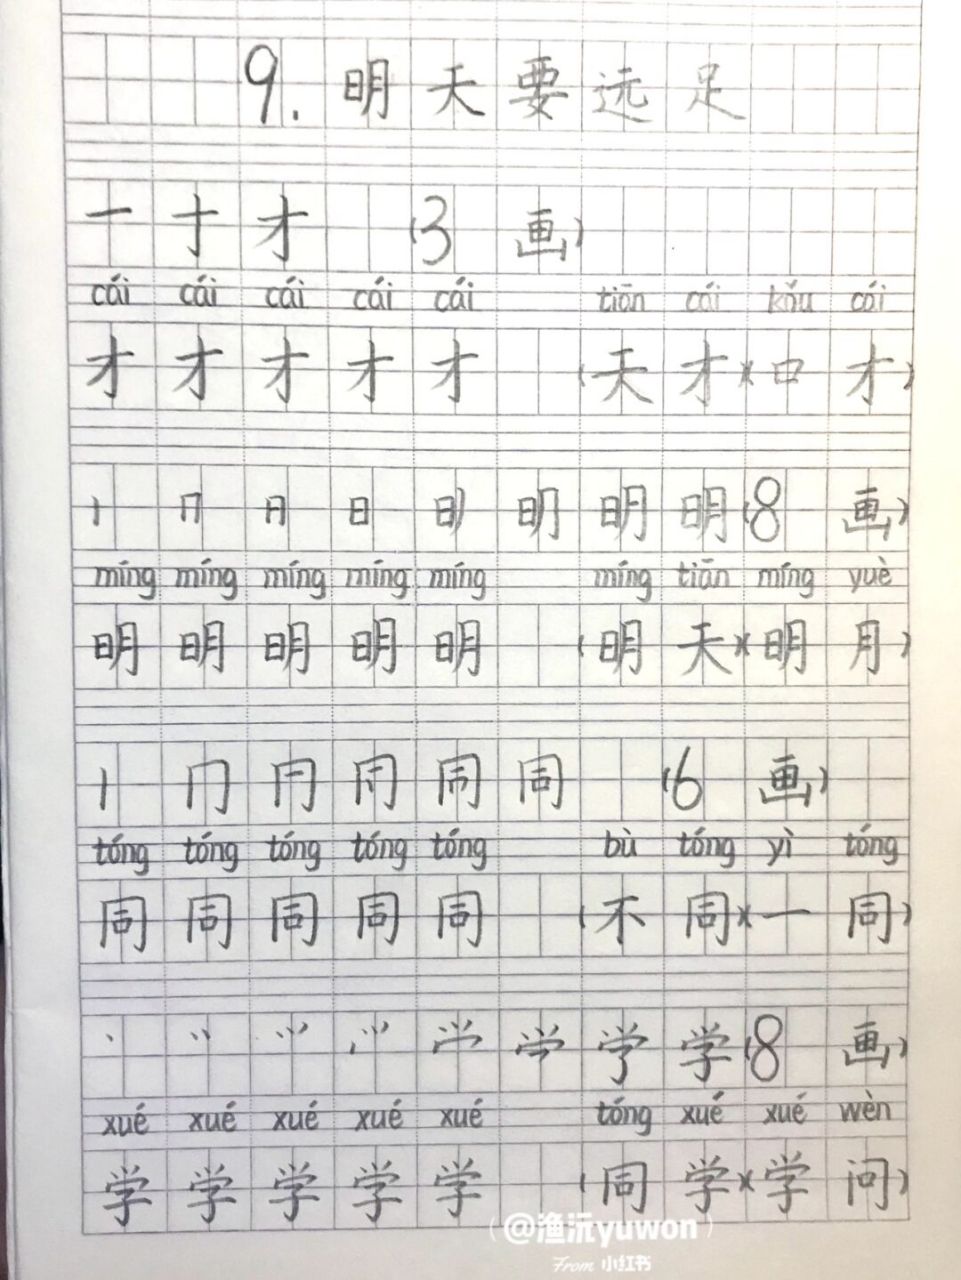 9. 明天要远足
一 十 才 (3 画)
cái cái cái cái cái tiān cái kǒu cái
才 才 才 才 才 (天才)(口才)
丨 冂 日 明 明 明(8 画)
míng míng míng míng míng míng tiān míng yuè
明 明 明 明 明 (明天)(明月)
丨 冂 同 (6 画)
tóng tóng tóng tóng tóng bù tóng yì tóng
同 同 同 同 同 (不同)(一同)
学(8 画)
xué xué xué xué xué tóng xué xué wèn
学 学 学 学 学 (同学)(学问)
@渔沅yuwon
From 小红书